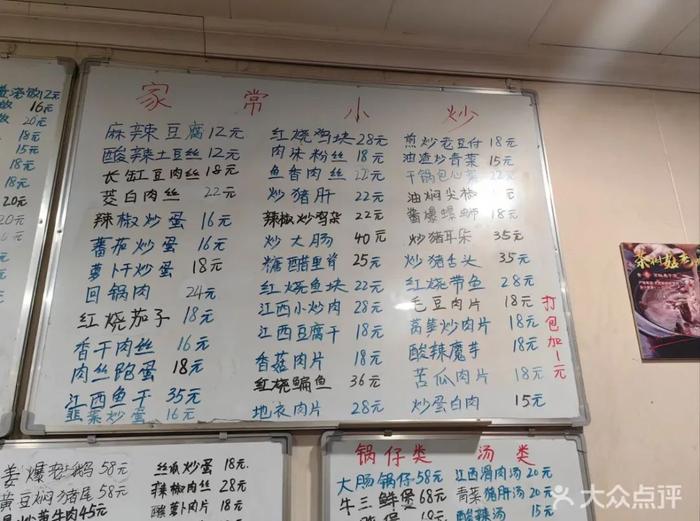 家常小炒
麻辣豆腐12元
酸辣土豆丝12元
长缸豆肉丝18元
茭白肉丝22元
辣椒炒蛋16元
蕃茄炒蛋16元
萝卜干炒蛋18元
回锅肉24元
红烧茄子18元
香干肉丝16元
肉丝跑蛋18元
江西鱼干35元
韭菜炒蛋16元
红烧鸡块28元
肉沫粉丝18元
鱼香肉丝22元
炒猪肝22元
辣椒炒鸡杂22元
炒大肠40元
糖醋里脊25元
红烧鱼块22元
江西小炒肉28元
江西豆腐干18元
香菇肉片18元
红烧鳊鱼36元
地衣肉片28元
煎炒老豆付18元
油渣炒青菜15元
干锅包心菜22元
油焖尖椒18元
酱爆螺蛳18元
炒猪耳朵35元
炒猪舌头35元
红烧带鱼28元
毛豆肉片18元
莴笋炒肉片18元
酸辣魔芋18元
苦瓜肉片18元
炒蛋白肉15元
打包加一元
12元
16元
20元
18元
15元
18元
20元
20元
20元
18元
姜爆老鹅58元
黄豆焖猪尾58元
牛肉45元
丝瓜炒蛋18元
辣椒肉丝28元
酸萝卜肉片18元
锅仔类 汤类
大肠锅仔58元
牛三鲜煲68元
江西滑肉汤20元
青菜猪肝汤20元
酸辣汤15元
大众点评